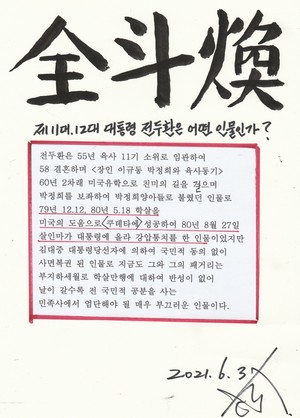 全斗煥
제11대.12대 대통령 전두환은 어떤 인물인가?
전두환은 55년 육사 11기 소위로 임관하여
58 결혼하며 <장인 이규동 박정희와 육사동기>
60년 2차례 미국유학으로 친미의 길을 걸으며
박정희를 보좌하여 박정희양아들로 불렸던 인물로
79년 12.12, 80년 5.18 학살을
미국의 도움으로<쿠데타에>성공하여 80년 8월 27일
살인마가 대통령에 올라 강압통치를 한 인물이었지만
김대중 대통령당선자에 의하여 국민적 동의 없이
사면복권 된 인물로 지금도 그와 그의 패거리는
부지하세월로 학살만행에 대하여 반성이 없어
날이 갈수록 전 국민적 공분을 사는
민족사에서 엄단해야 될 매우 부끄러운 인물이다.
2021.6.3